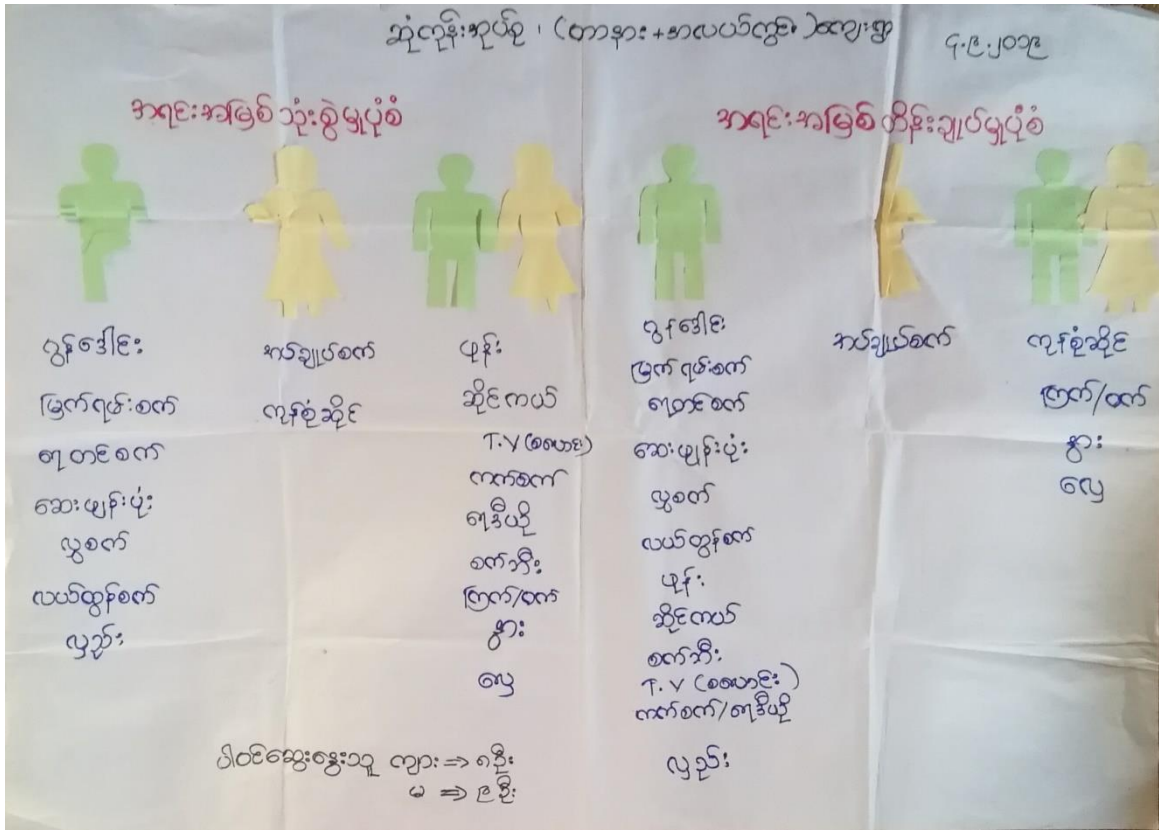 ဆုံကုန်းအုပ်စု ၊ (တာနား+အလယ်ကွင်း) ကျေးရွာ
၄.၉.၂၀၁၉
အရင်းအမြစ် သုံးစွဲမှုပုံစံ
ဂွန်ဒေါင်း
မြက်ရမ်းစက်
ရေတင်စက်
ဆေးဖျန်းပုံး
လွှစက်
လယ်ထွန်စက်
လှည်း
အပ်ချုပ်စက်
ကုန်စုံဆိုင်
ဖုန်း
ဆိုင်ကယ်
T.V (စလောင်း)
ကက်စက်
ရေဒီယို
စက်ဘီး
ကြက်/ဝက်
နွား
လှေ
အရင်းအမြစ် ထိန်းချုပ်မှုပုံစံ
ဂွန်ဒေါင်း
မြက်ရမ်းစက်
ရေတင်စက်
ဆေးဖျန်းပုံး
လွှစက်
လယ်ထွန်စက်
ဖုန်း
ဆိုင်ကယ်
စက်ဘီး
T.V (စလောင်း)
ကက်စက်/ရေဒီယို
လှည်း
အပ်ချုပ်စက်
ကုန်စုံဆိုင်
ကြက်/ဝက်
နွား
လှေ
ပါဝင်ဆွေးနွေးသူ ကျား ⇒ ၈ ဦး
မ ⇒ ၉ ဦး